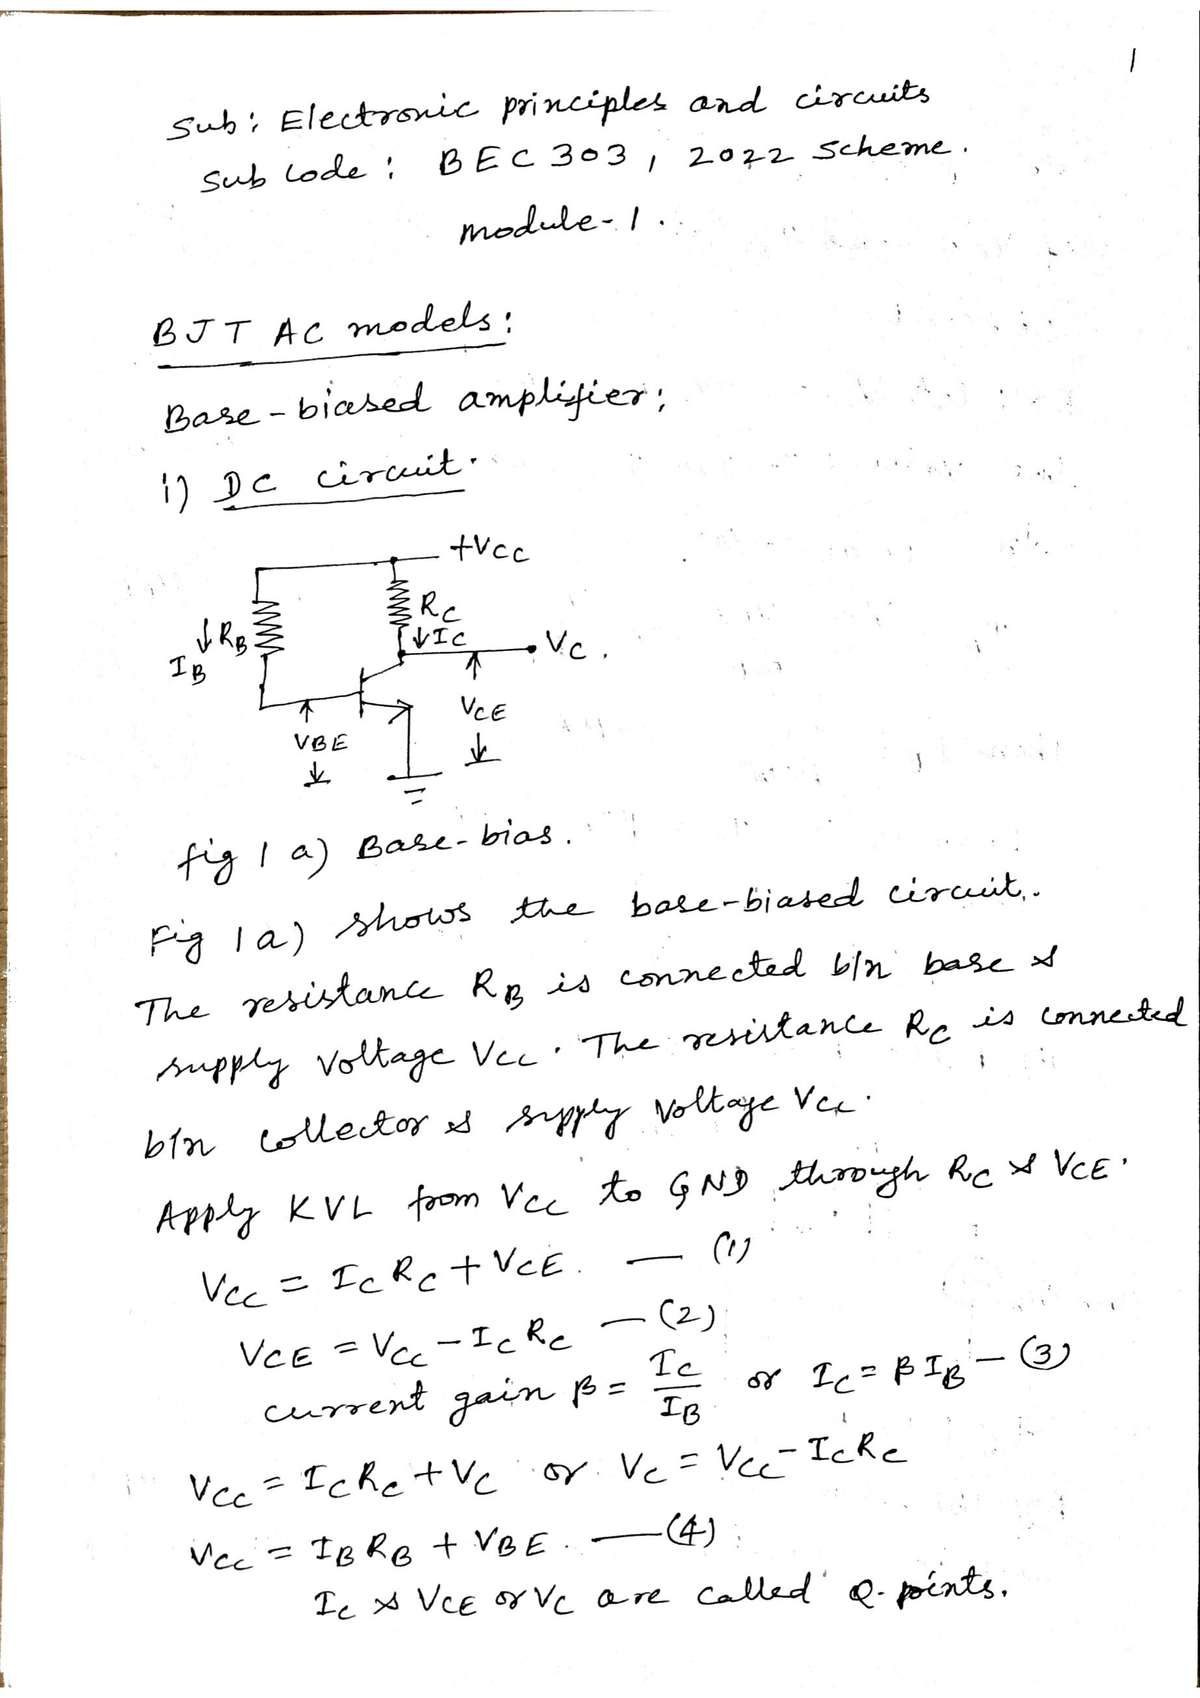 1
Sub: Electronic principles and circuits
Sub Code: BEC303, 2022 Scheme.
Module-1.
BJT AC models:
Base-biased amplifier:
i) DC circuit.
+VCC
RC
↓RB
↓IC
VC.
IB
VCE
VBE
fig 1 a) Base-bias.
Fig 1a) shows the base-biased circuit.
The resistance RB is connected b/n base &
supply voltage Vcc. The resistance Rc is connected
b/n collector & supply voltage Vcc.
Apply KVL from Vcc to GND through Rc & VCE.
Vcc = IcRc + VCE. — (1)
VCE = Vcc - IcRc — (2)
current gain β = Ic/IB or Ic = βIB — (3)
Vcc = IcRc + Vc or Vc = Vcc - IcRc
Vcc = IBRB + VBE. — (4)
Ic & VCE or Vc are called Q-points.